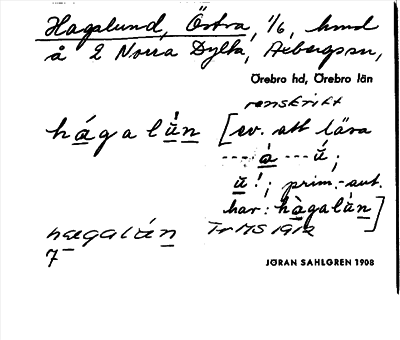 Hagalund, Östra, 1/6, hmd
å 2 Norra Dylta, Axbergs sn,
Örebro hd, Örebro län
renskrift
hágalún [ev. att lära
---- á --- ú;
u!; prim.-aut.
har: hàgalùn]
hagalún Tr MS 1912
7
JÖRAN SAHLGREN 1908